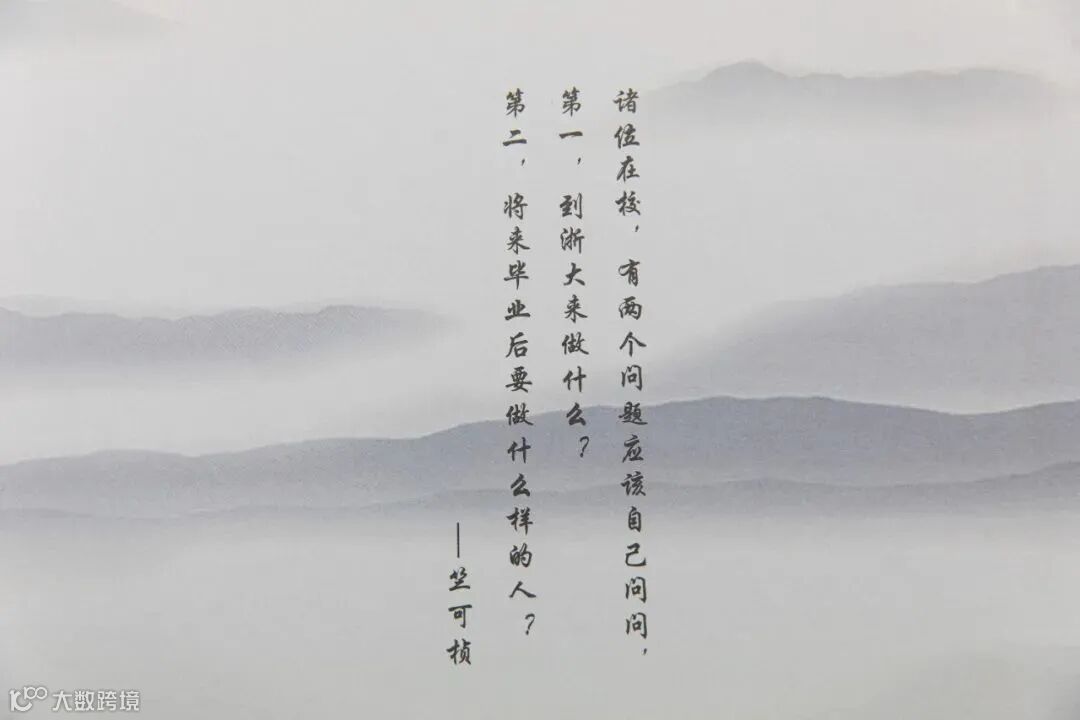 诸位在校，有两个问题应该自己问问，
第一，到浙大来做什么？
第二，将来毕业后要做什么样的人？
—竺可桢
大数跨境